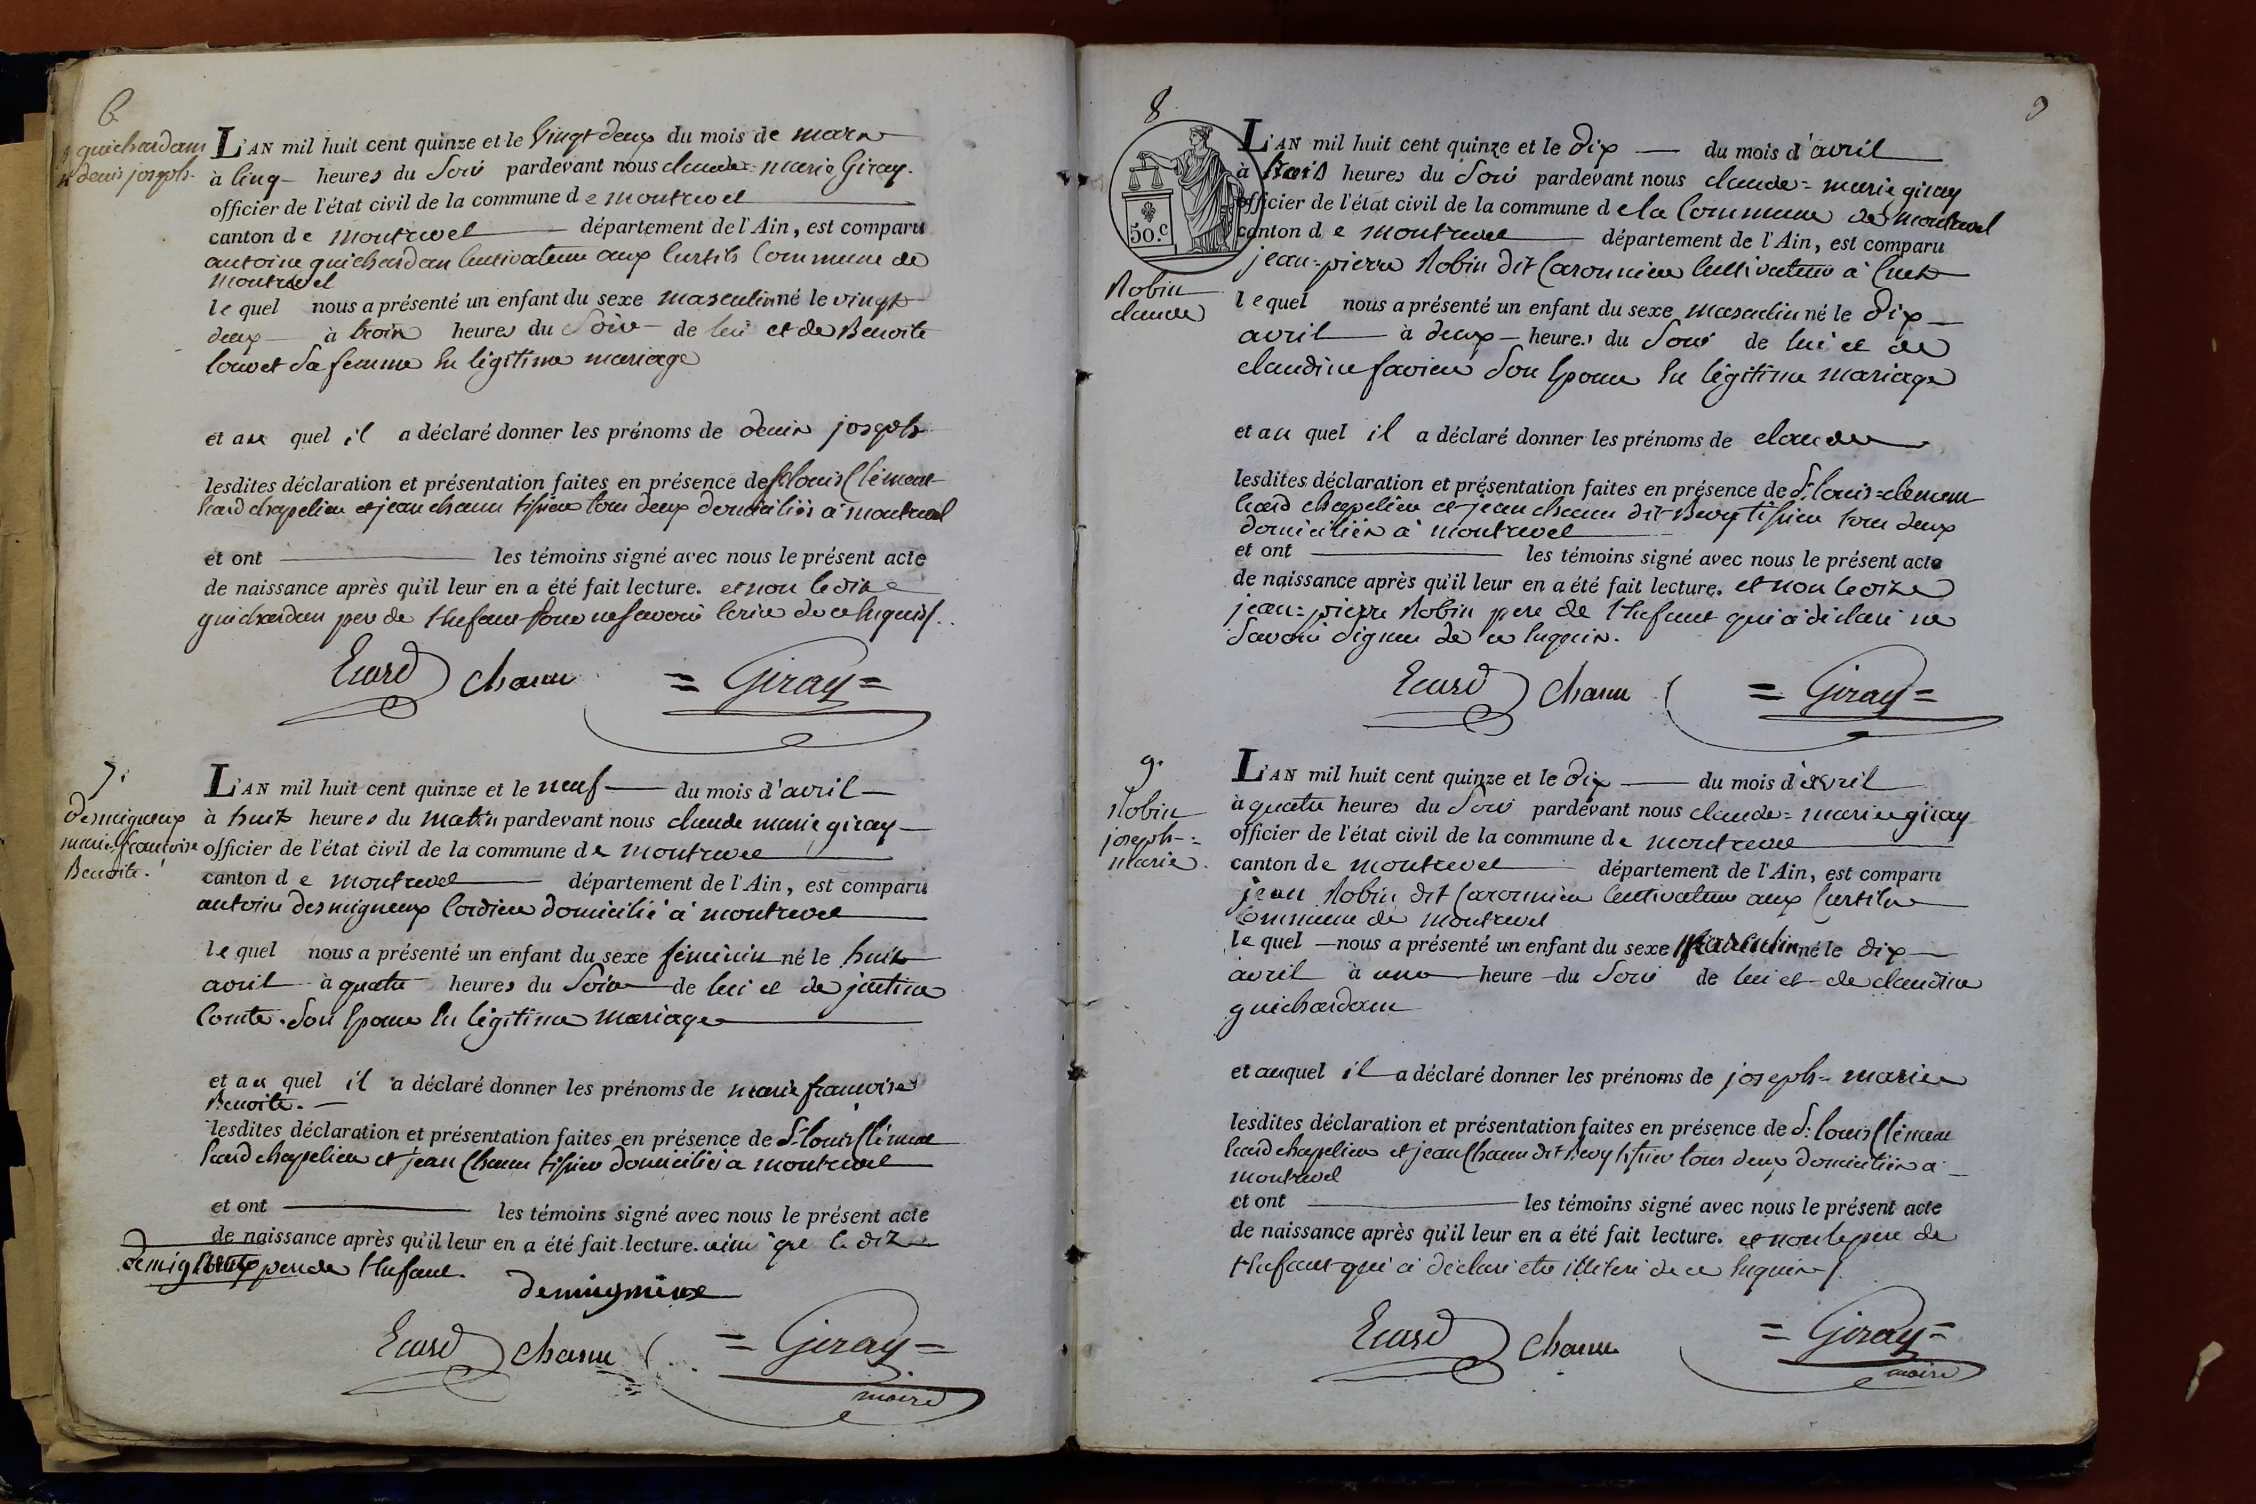 6.
guichardan
denis joseph.
L'AN mil huit cent quinze et le vingt deux du mois de mars
à cinq heures du Soir pardevant nous claude-marie Giray.
officier de l'état civil de la commune de montrevel
canton de montrevel département de l'Ain, est comparu
antoine guichardan cultivateur aux Curtils Commune de
montrevel
le quel nous a présenté un enfant du sexe masculin né le vingt
deux à trois heures du Soir de lui et de Benoite
louvet Sa femme En légitime mariage
et au quel il a déclaré donner les prénoms de denis joseph
lesdites déclaration et présentation faites en présence de Sr louis Clément
Ecard chapelier et jean charnu tissier tous deux domiciliés à montrevel
et ont les témoins signé avec nous le présent acte
de naissance après qu'il leur en a été fait lecture. et non le dit
guichardan pere de l'enfant pour ne savoir Ecrire de ce Enquis /.
Ecard charnu = Giray =
7.
Desmigneux
marie françoise
Benoite.
L'AN mil huit cent quinze et le neuf du mois d'avril
à huit heures du matin pardevant nous claude marie giray
officier de l'état civil de la commune de montrevel
canton de montrevel département de l'Ain, est comparu
antoine desmigneux Cordier domicilié à montrevel
le quel nous a présenté un enfant du sexe féminin né le huit
avril à quatre heures du Soir de lui et de justine
Comte. Son Epouse En légitime mariage
et au quel il a déclaré donner les prénoms de marie françoise
Benoite.
lesdites déclaration et présentation faites en présence de Sr louis Clément
Ecard chapelier et jean Charnu tissier domiciliés à montrevel
et ont les témoins signé avec nous le présent acte
de naissance après qu'il leur en a été fait lecture. ainsi que le dit
pere de l'Enfant.
demigneux
Ecard charnu = Giray =
maire
8.
9
50.C
Robin
claude
L'AN mil huit cent quinze et le dix du mois d'avril
à trois heures du Soir pardevant nous claude-marie giray
officier de l'état civil de la commune de la Commune de montrevel
canton de montrevel département de l'Ain, est comparu
jean-pierre Robin dit Caronnier Cultivateur à Cuet
le quel nous a présenté un enfant du sexe masculin né le dix
avril à deux heures du Soir de lui et de
claudine favier Son Epouse En légitime mariage
et au quel il a déclaré donner les prénoms de claude
lesdites déclaration et présentation faites en présence de Sr. louis-clément
Ecard chapelier et jean charnu dit Bevy tissier tous deux
domiciliés à montrevel
et ont les témoins signé avec nous le présent acte
de naissance après qu'il leur en a été fait lecture. et non le dit
jean-pierre Robin pere de l'Enfant qui a déclaré ne
Savoir signer de ce Enquis.
Ecard charnu = Giray =
9.
Robin
joseph-
marie.
L'AN mil huit cent quinze et le dix du mois d'avril
à quatre heures du Soir pardevant nous claude-marie giray
officier de l'état civil de la commune de montrevel
canton de montrevel département de l'Ain, est comparu
jean Robin dit Caronnier Cultivateur aux Curtils
Commune de montrevel
le quel nous a présenté un enfant du sexe masculin né le dix
avril à une heure du Soir de lui et de claudine
guichardan
et auquel il a déclaré donner les prénoms de joseph-marie
lesdites déclaration et présentation faites en présence de Sr. louis Clément
Ecard chapelier et jean Charnu dit Bevy tissier tous deux domiciliés à
montrevel
et ont les témoins signé avec nous le présent acte
de naissance après qu'il leur en a été fait lecture. et non le pere de
l'Enfant qui a déclaré etre illiteré de ce Enquis /.
Ecard charnu = Giray =
maire